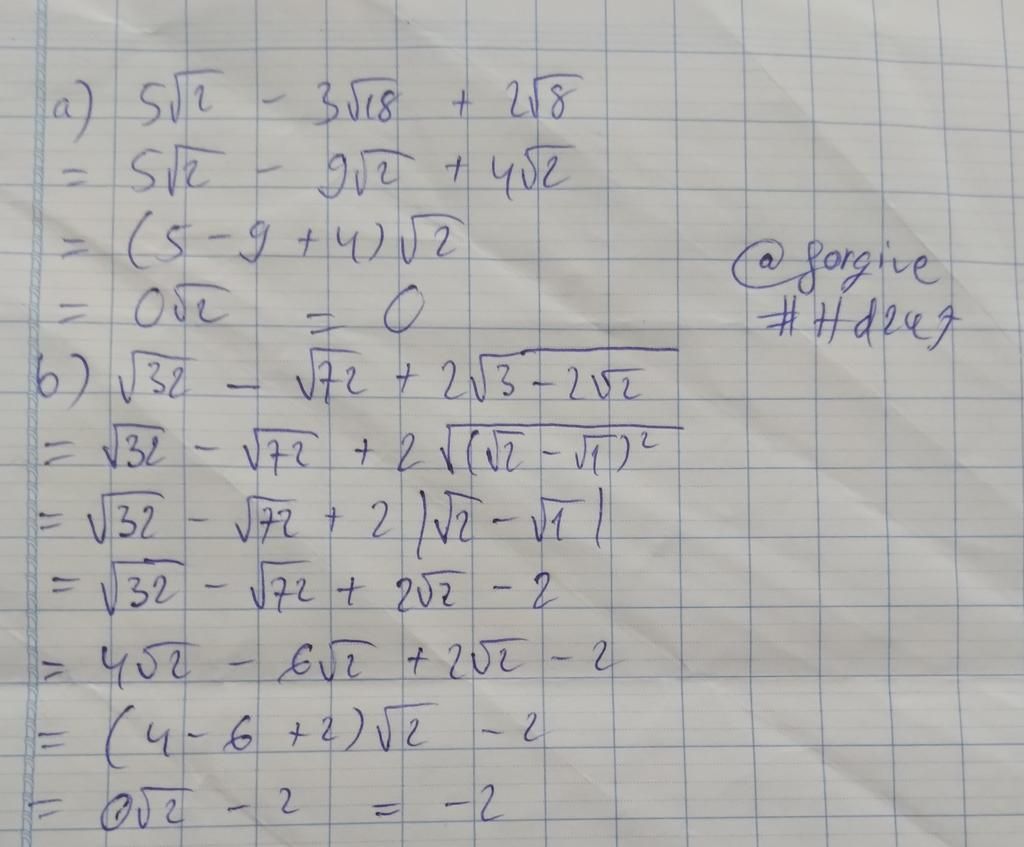 a) 5√2 - 3√18 + 2√8
= 5√2 - 9√2 + 4√2
= (5 - 9 + 4)√2
= 0√2 = 0
@forgive
##d247
b) √32 - √72 + 2√(3 - 2√2)
= √32 - √72 + 2√((√2 - √1)²)
= √32 - √72 + 2|√2 - √1|
= √32 - √72 + 2√2 - 2
= 4√2 - 6√2 + 2√2 - 2
= (4 - 6 + 2)√2 - 2
= 0√2 - 2 = -2